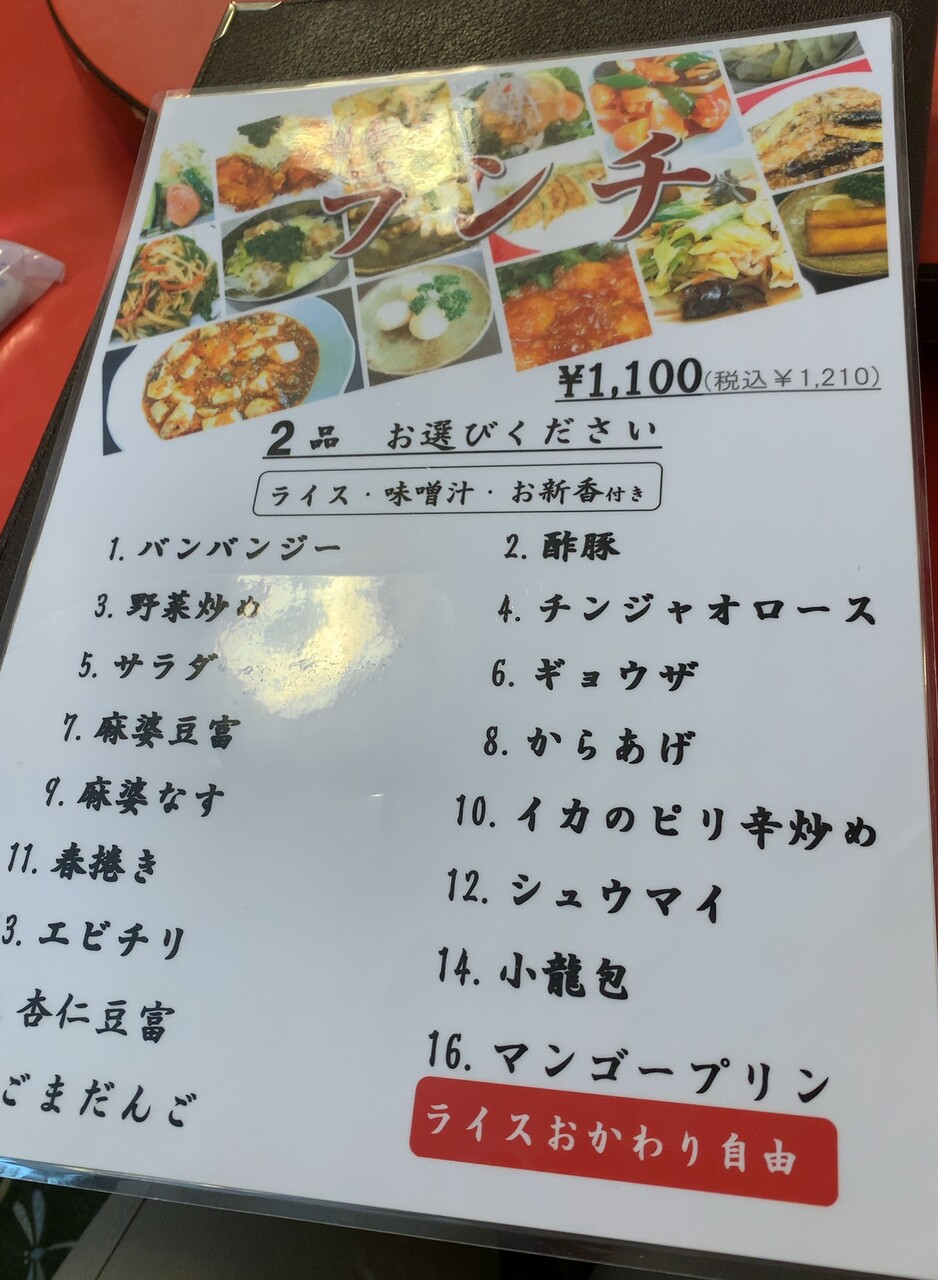 ランチ
¥1,100(税込¥1,210)
2品 お選びください
ライス・味噌汁・お新香付き
1. バンバンジー
2. 酢豚
3. 野菜炒め
4. チンジャオロース
5. サラダ
6. ギョウザ
7. 麻婆豆富
8. からあげ
9. 麻婆なす
10. イカのピリ辛炒め
11. 春捲き
12. シュウマイ
3. エビチリ
14. 小龍包
杏仁豆富
16. マンゴープリン
ごまだんご
ライスおかわり自由